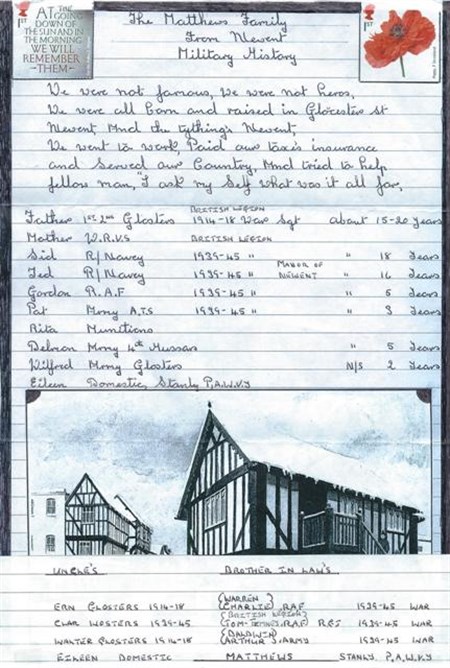 The Matthews Family
From Newent
Military History
1st
AT THE
GOING
DOWN OF
THE SUN AND IN
THE MORNING
WE WILL
REMEMBER
~THEM~
1st
We were not famous, We were not heros,
We were all born and raised in Glocester st
Newent And the tything's Newent,
We went to work, Paid our taxe's insurance
and Served our Country, And tried to help
fellow man, "I ask my Self what was it all for,
BRITISH LEGION
Father 1st 2nd Glosters 1914-18 War Sgt about 15-20 Years
Mother W.R.V.S BRITISH LEGION
Sid R/Navey 1939-45 " " 18 Years
MANOR OF
Ted R/Navey 1939-45 " NEWENT " 16 Years
Gordon R.A.F 1939-45 " " 5 Years
Pat Army A.T.S 1939-45 " " 3 Years
Rita Munitions
Army 4th Hussars " 5 Years
Wilford Army Glosters N/S 2 Years
Eileen Domestic, Stanly P,A,W,V,Y
UNCLE'S BROTHER IN LAW'S
(WARREN)
ERN GLOSTERS 1914-18 (CHARLIE) RAF 1939-45 WAR
(BRITISH LEGION)
CLAR WOSTERS 1939-45 TOM RAF 1939-45 WAR
(BALDWIN)
WALTER GLOSTERS 1914-18 ARTHUR S/ARMY 1939-45 WAR
EILEEN DOMESTIC MATTHEWS STANLY P,A,W,V,Y